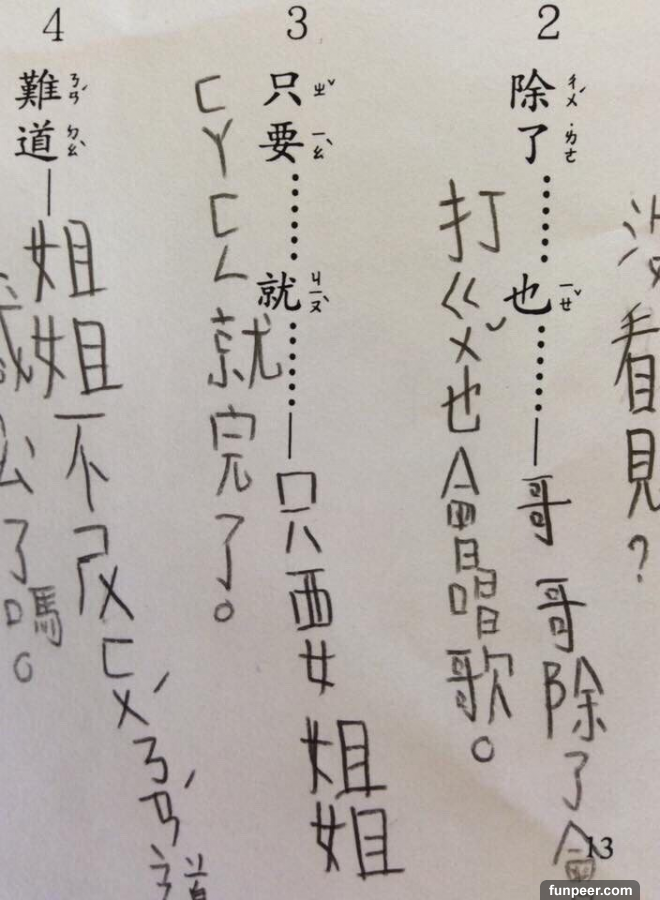 沒看見？
2 除ㄔㄨˊ了˙ㄌㄜ……也ㄧㄝˇ……—哥哥除了會
打ㄍㄨˇ也會唱歌。
3 只ㄓˇ要ㄧㄠˋ……就ㄐㄧㄡˋ……—只要姐姐
ㄈㄚㄈㄥ就完了。
4 難ㄋㄢˊ道ㄉㄠˋ—姐姐不ㄕㄨㄈㄨˊㄋㄢˊ道
了嗎。
13
funpeer.com